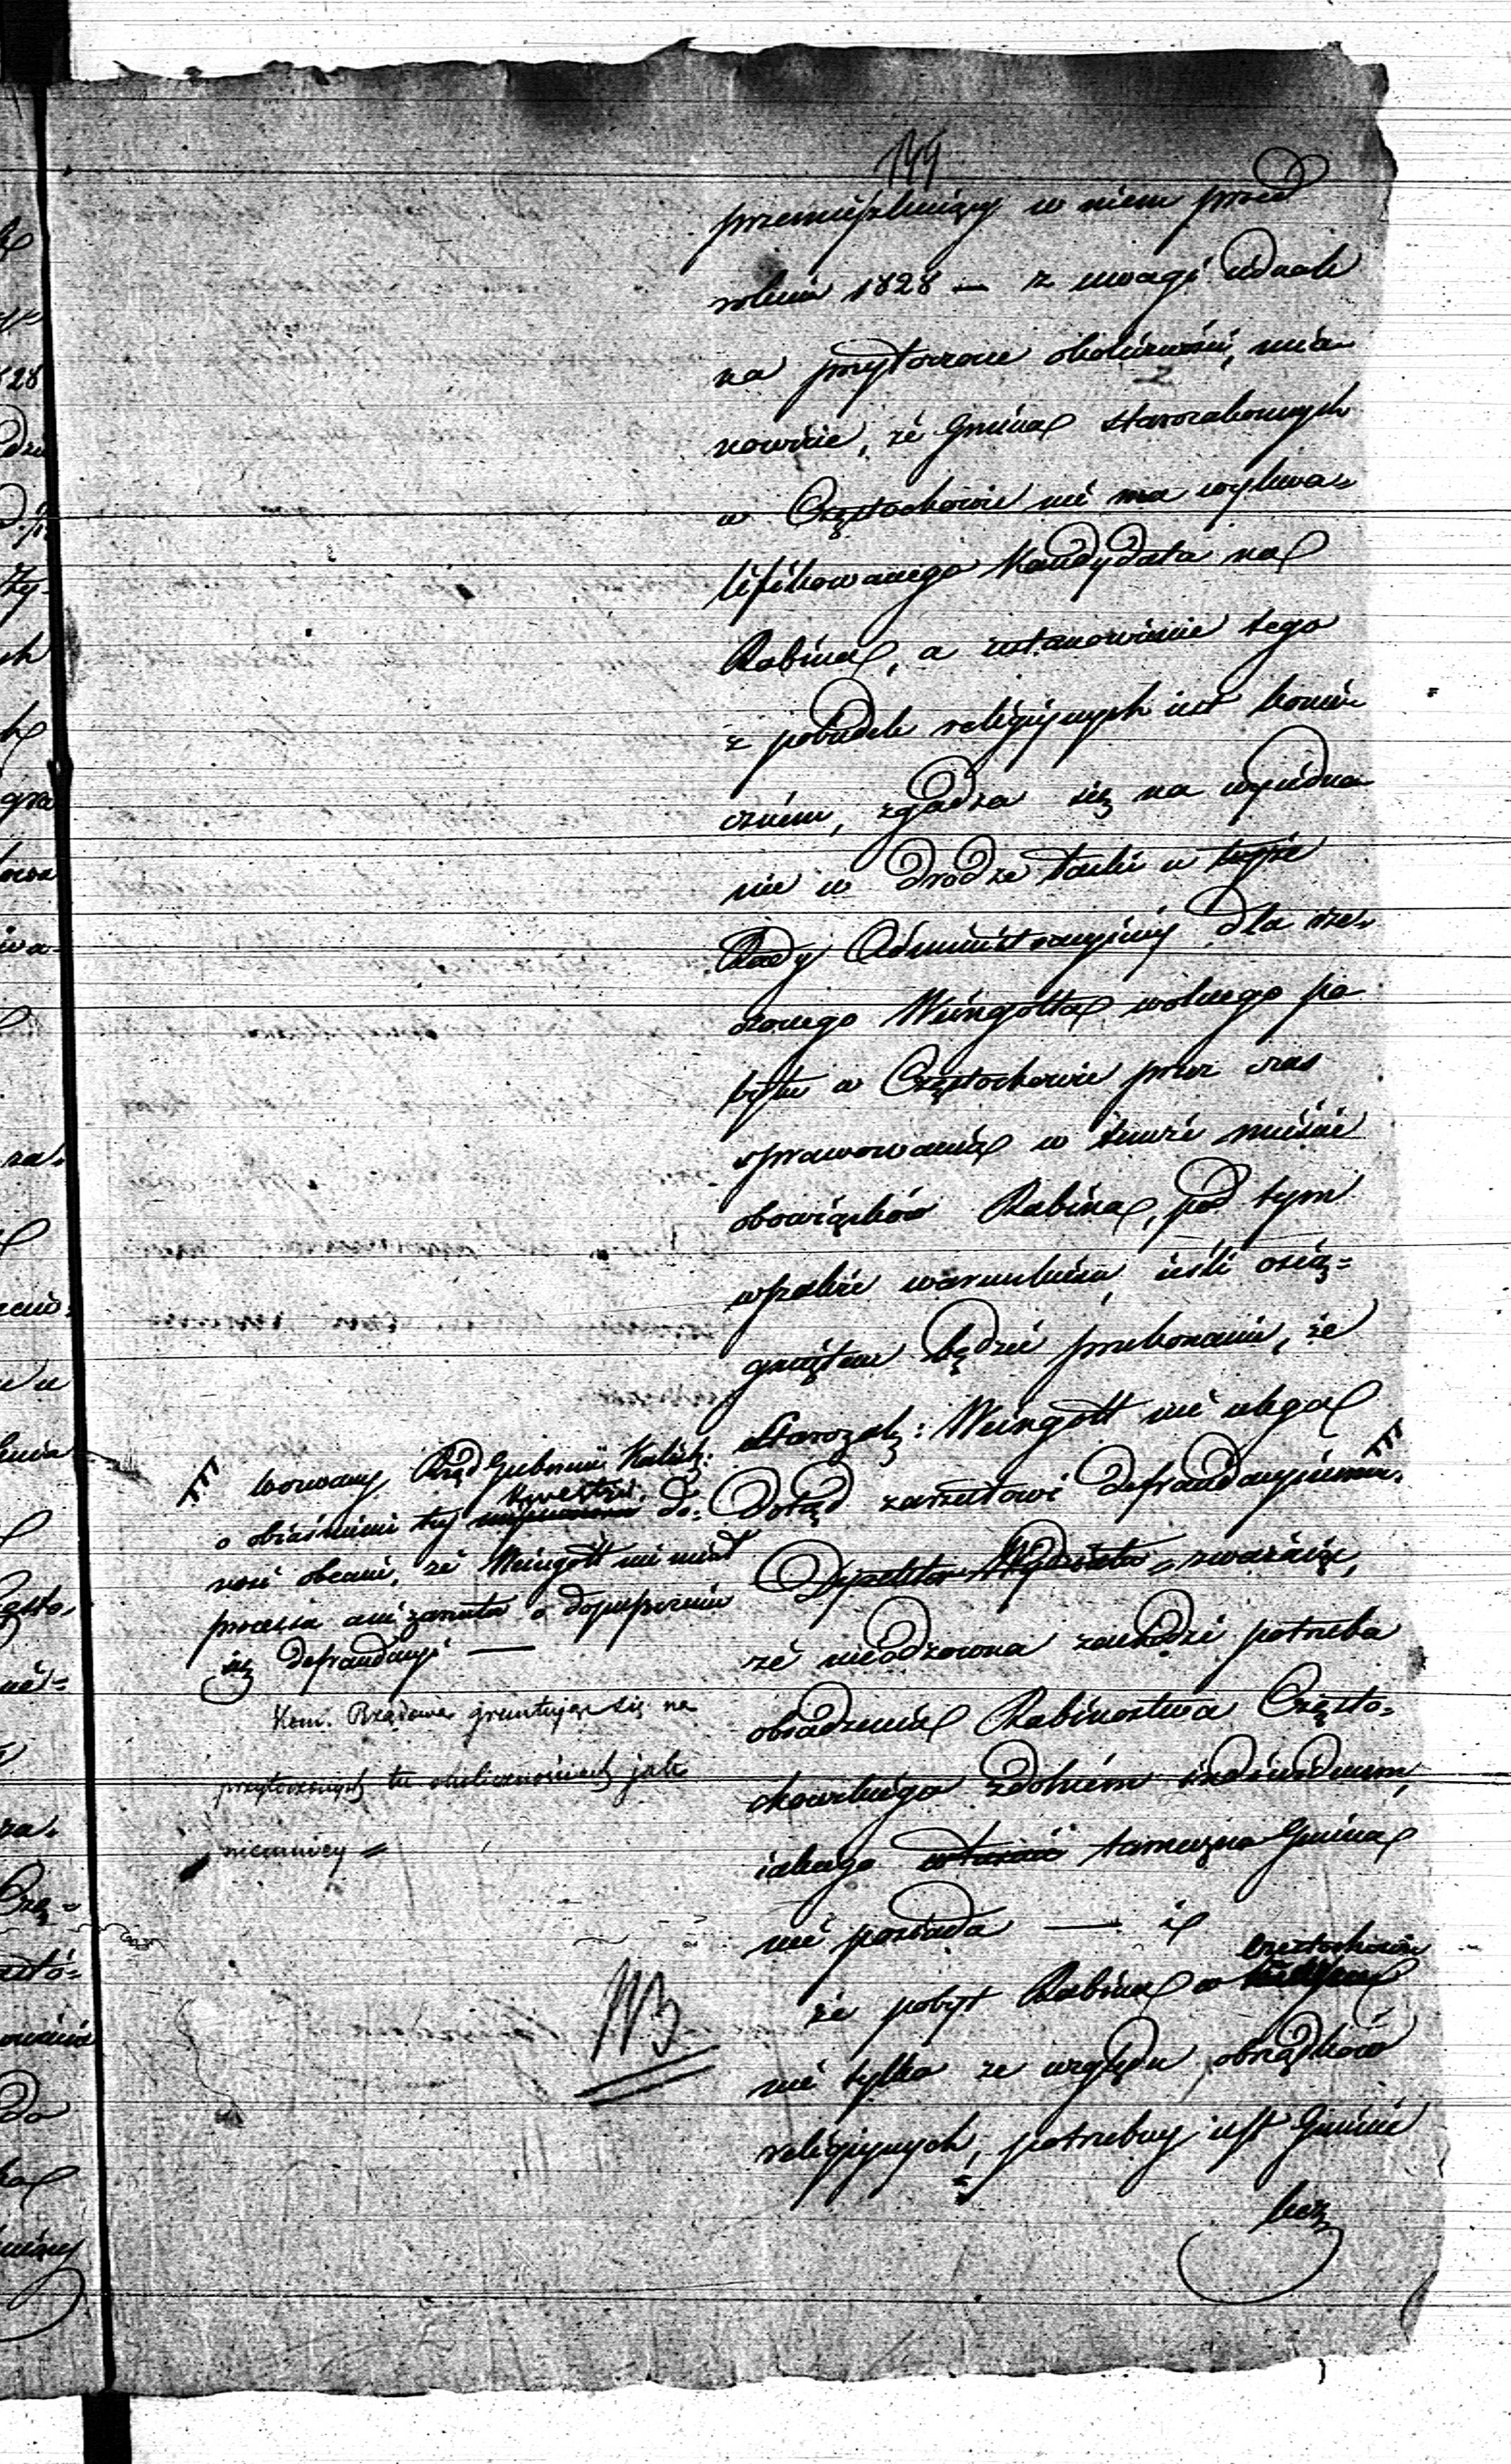 144
przemieszkuiący w niem przed
rokiem 1828 — z uwagi iednak
na przytoczone okoliczności, mia-
nowicie, że Gmina starozakonnych
w Częstochowie nie ma wykwa-
lifikowanego Kandydata na
Rabina, a ustanowienie tego
z pobudek religijnych iest koniecz-
cznem, zgadza się na wyiedna-
nie w drodze łaski u tejże
Rady Administracyjnej dla rze-
czonego Weingotta wolnego po-
bytu w Częstochowie przez czas
sprawowania w temże mieście
obowiązków Rabina, pod tym
wszakże warunkiem, ieśli osią-
gniętem będzie przekonanie, że
Starozak: Weingott nie ulega
Dotąd zarzutowi defraudacyinemu.
Dyrektor Wydziału zważaiąc,
że nieodzowna zachodzi potrzeba
obsadzenia Rabinostwa Często-
chowskiego zdolnem indiwiduum,
iakiego tameczna Gmina
nie posiada — i
że pobyt Rabina w Częstochowie
nie tylko ze względu obrządków
religijnych, potrzebny iest Gminie
lecz
wezwany Rząd Gubernii Kalisk:
o obiaśnienie tej kwestii do-
nosi obecnie, że Weingott nie miał
procesu ani zarzutu o dopuszczenie
się defraudacyi —
Kom. Rządowa gruntując się na
przytoczonych tu okolicznościach jako
niemniey
NB